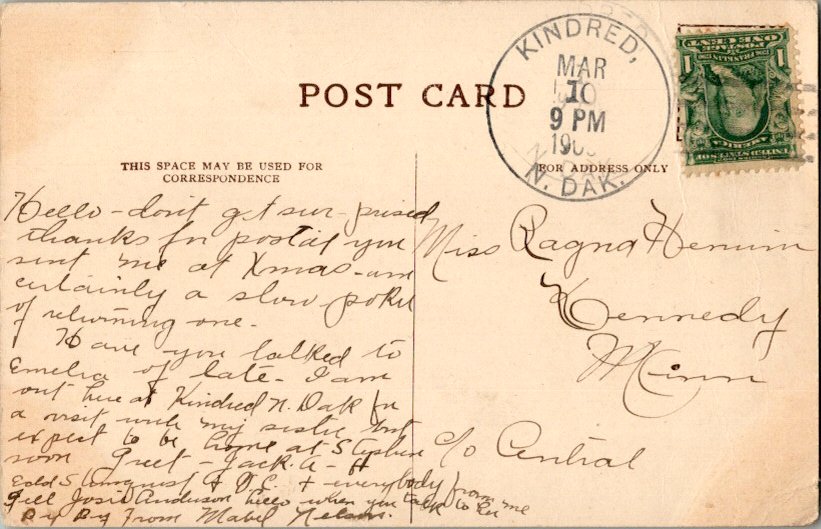 POST CARD
KINDRED,
MAR
10
9 PM
N. DAK.
THIS SPACE MAY BE USED FOR
CORRESPONDENCE
FOR ADDRESS ONLY
ONE CENT
POSTAGE
1 FRANKLIN 1
UNITED STATES OF
AMERICA
Hello - don't get sur-prised
thanks for postal you
sent me at Xmas - am
certainly a slow poke
of returning one.
Have you talked to
Emelia of late - I am
out here at Kindred N. Dak for
a visit with my sister but
expect to be home at Stephen
soon Greet - Jack. A -
& D.C. + everybody from me
Tell Josie Anderson hello when you talk to her
By By From Mabel Nelson.
Miss Ragna
Kennedy
Minn
c/o Central